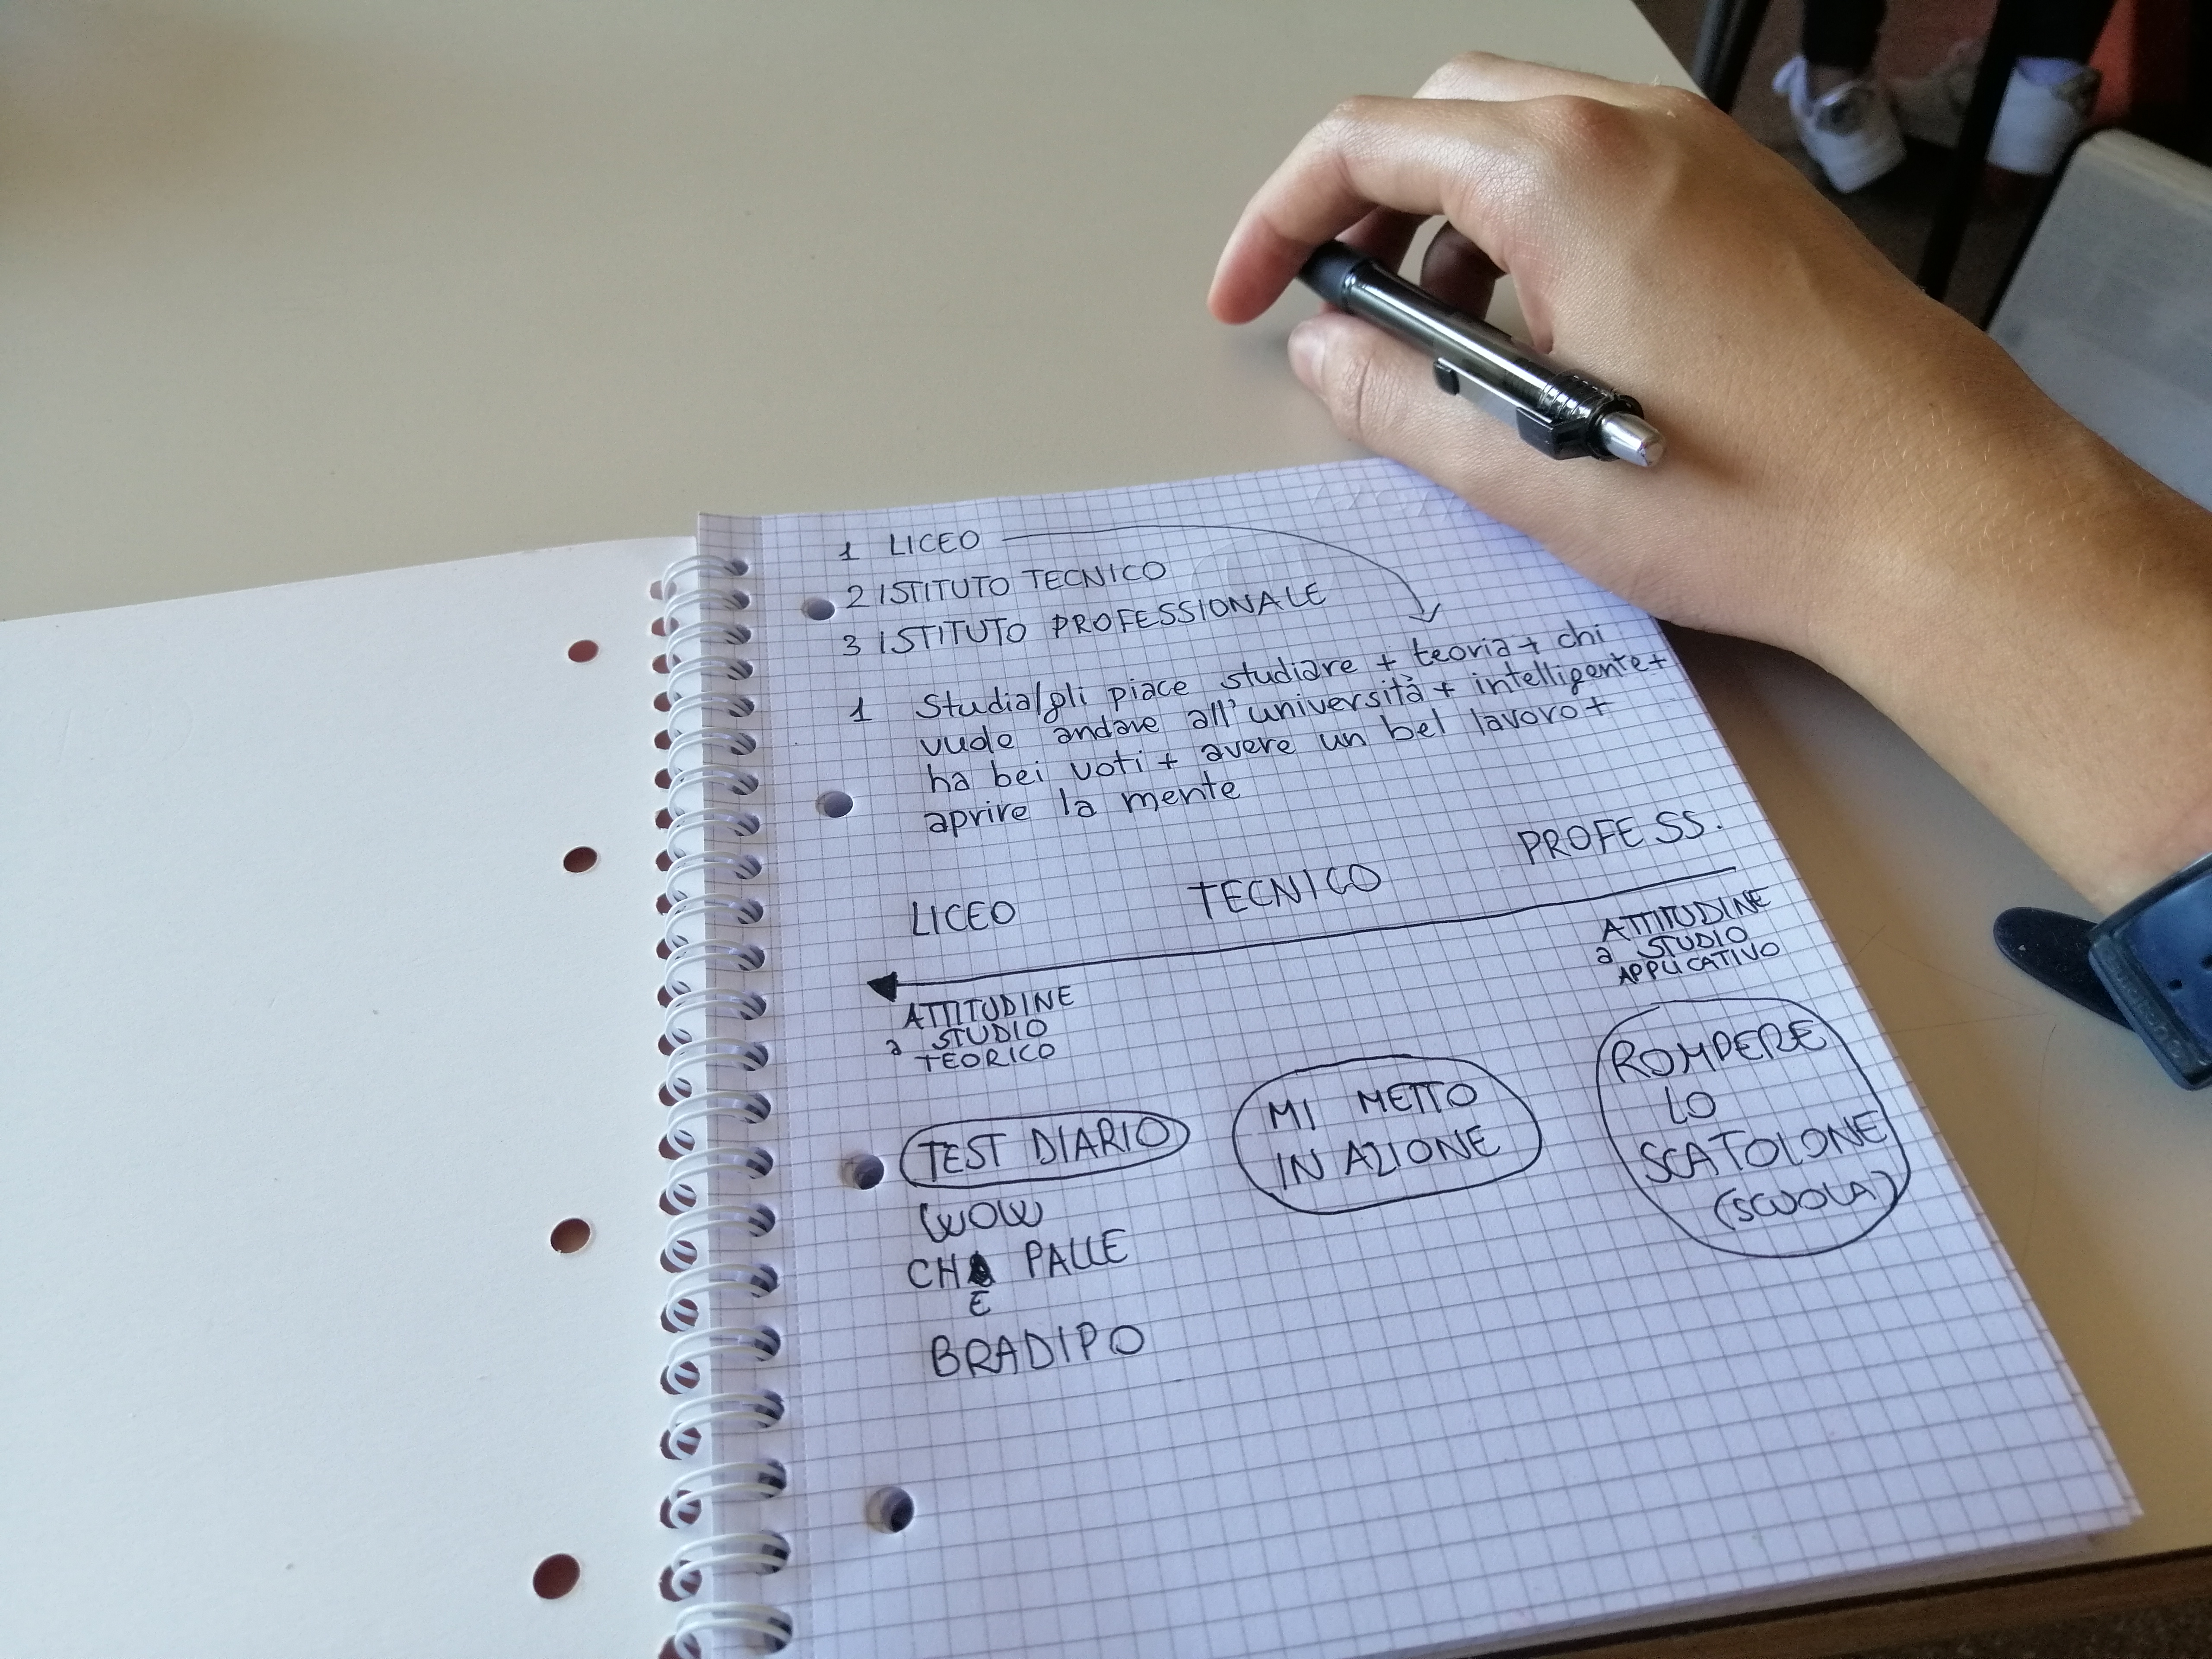 1 LICEO
2 ISTITUTO TECNICO
3 ISTITUTO PROFESSIONALE
1 Studia/gli piace studiare + teoria + chi
vuole andare all'università + intelligente +
ha bei voti + avere un bel lavoro +
aprire la mente
LICEO TECNICO PROFESS.
ATTITUDINE
a STUDIO
TEORICO
ATTITUDINE
a STUDIO
APPLICATIVO
TEST DIARIO
WOW
CHE PALLE
BRADIPO
MI METTO
IN AZIONE
ROMPERE
LO
SCATOLONE
(SCUOLA)